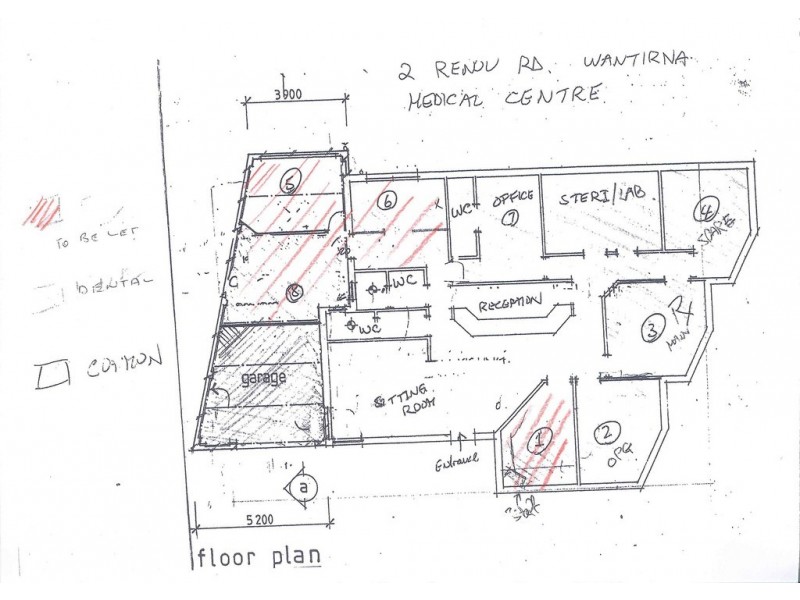 2 RENOU RD. WANTIRNA
MEDICAL CENTRE.
3900
5
6
WC
OFFICE
7
STERI/LAB.
4
SPARE
TO BE LET
DENTAL
COMMON
8
WC
WC
RECEPTION
3
garage
SITTING
ROOM
1
2
OPG
Entrance
a
5200
floor plan